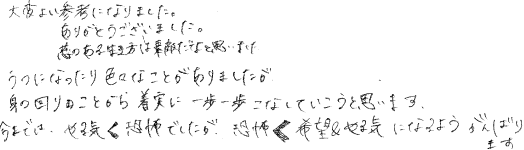 大変よい参考になりました。
ありがとうございました。
夢のある生き方は素敵だなと思いました
うつになったり色々なことがありましたが
身の回りのことから着実に一歩一歩こなしていこうと思います。
今までは、やる気<恐怖でしたが、恐怖<希望&やる気になるようがんばり
ます